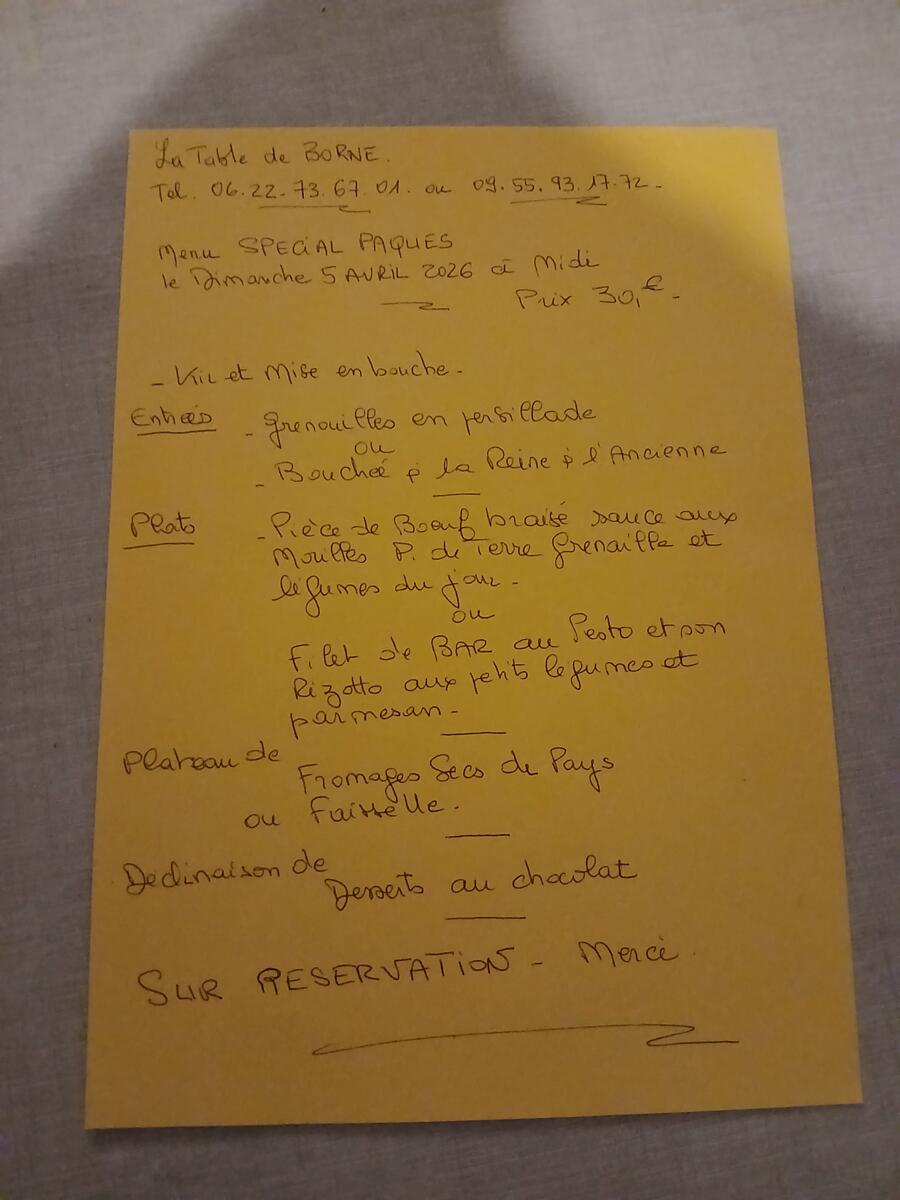 La Table de BORNE.
Tel. 06.22-73.67.01. ou 09.55.93.17.72-
Menu SPECIAL PAQUES
le Dimanche 5 AVRIL 2026 à Midi
Prix 30,€-
- Kir et Mise en bouche-
Entrées - Grenouilles en persillade
ou
- Bouchée à la Reine à l'Ancienne
Plats - Pièce de Boeuf braisé sauce aux
Morilles P. de Terre Grenaille et
légumes du jour-
ou
Filet de BAR au Pesto et son
Rizotto aux petits légumes et
parmesan-
Plateau de
Fromages Secs de Pays
ou Faisselle.
Déclinaison de
Desserts au chocolat
SUR RESERVATION - Merci.